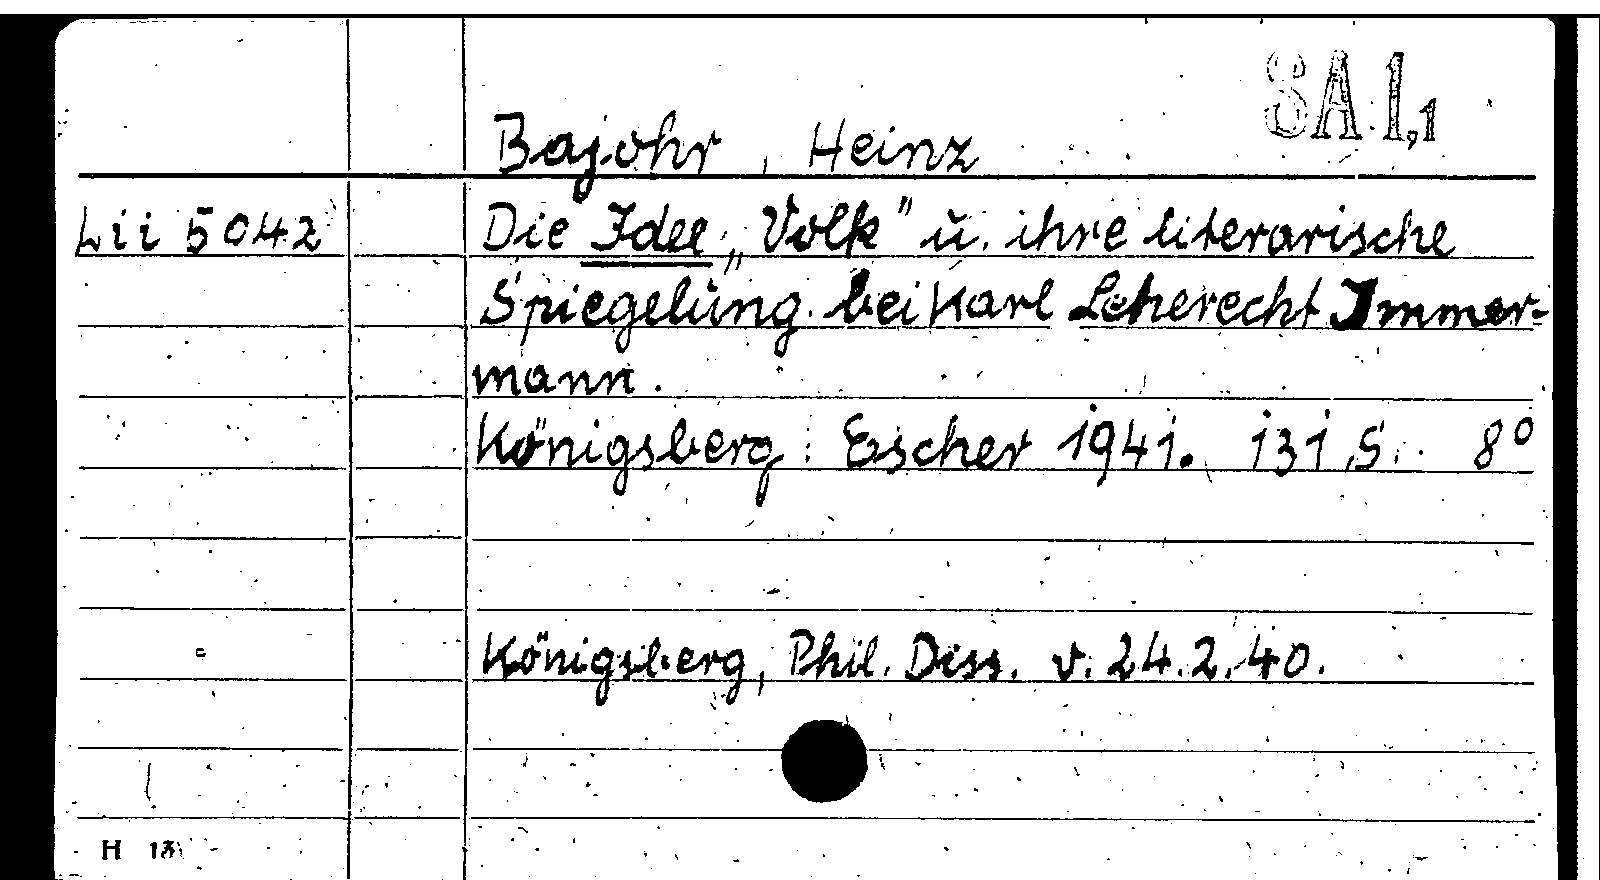 SA 1,1
Bajohr, Heinz
Lii 5042 Die Idee „Volk" u. ihre literarische
Spiegelung bei Karl Leberecht Immer-
mann.
Königsberg: Escher 1941. 131 S. 8°
Königsberg, Phil. Diss. v. 24.2.40.
H 13